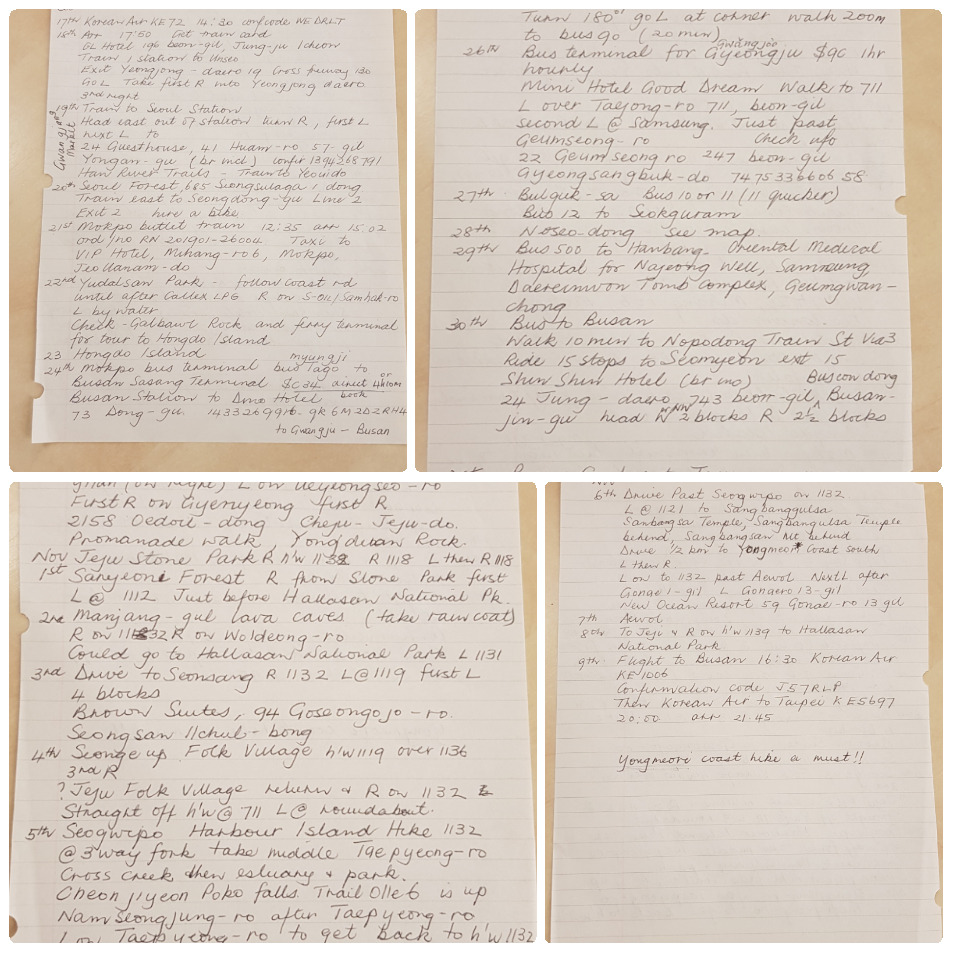 17th Korean Air KE72 14:30 conf code WEDRLT
18th Arr 17:50 Get train card
GL Hotel 196 beon-gil, Jung-ju Icheon
Train 1 station to Unseo
Exit Yeongjong-daero 19 Cross freeway 130
Go L Take first R into Yeongjong daero
3rd right
19th Train to Seoul Station
Head east out of station turn R, first L
next L to
24 Guesthouse, 41 Huam-ro 57-gil
Yongan-gu (br incl) confir 1394268791
Han River Trails - Train to Yeouido
Gwangjang Market
20th Seoul Forest, 685 Seongsulaga 1 dong
Train east to Seongdong-gu Line 2
Exit 2 hire a bike
21st Mokpo bullet train 12:35 arr 15.02
ord/no RN 201901-26004 Taxi to
VIP Hotel, Mihang-ro 6, Mokpo,
Jeollanam-do
22nd Yudalsan Park - follow coast rd
until after Caltex LPG R on S-OIL/Samhak-ro
L by water
Check - Galbawi Rock and ferry terminal
for tour to Hongdo Island
23 Hongdo Island myungji
24th Mokpo bus terminal bus 1a90 to
Busan Sasang Terminal $C34 direct or 4hr10m
Busan Station to Dmo Hotel book
73 Dong-gu. 1433269916. gk 6M2D2RH4
to Gwangju - Busan
Turn 180° go L at corner walk 200m
to bus go (20 min)
Gwangjoo
26th Bus terminal for Gyeongju $9C 1hr
hourly
Mini Hotel Good Dream Walk to 711
L over Taejong-ro 711, beon-gil
second L @ Samsung. Just past
Geumseong-ro Check info
22 Geumseong ro 247 beon-gil
Gyeongsangbuk-do 7475336606 58
27th Bulguk-sa Bus 10 or 11 (11 quicker)
Bus 12 to Seokguram
28th Noseo-dong see map.
29th Bus 500 to Hanbang- Oriental Medical
Hospital for Najeong Well, Samneung,
Daereimwon Tomb Complex, Geumgwan-
chong
30th Bus to Busan
Walk 10 min to Nopodong Train St Via 3
Ride 15 stops to Seomyeon ext 15
Shin Shin Hotel (br mo) Buseon dong
24 Jung-daero 743 beon-gil, Busan-
jin-gu head W NNW 2 blocks R 2½ blocks
ghan (on right) L on Ueyeongseo-ro
First R on Gyenyeong first R
2158 Oedoil-dong Cheju-Jeju-do.
Promanade walk, Yongduam Rock.
Nov 1st Jeju Stone Park R h'w 1132 R 1118 L then R 1118
Saryeoni Forest R from Stone Park first
L @ 1112 Just before Hallasan National Pk.
2nd Manjang-gul lava caves (take raincoat)
R on 1132 R on Woldeong-ro
Could go to Hallasan National Park L 1131
3rd Drive to Seonsang R 1132 L @ 1119 first L
4 blocks
Brown Suites, 94 Goseongojo-ro.
Seongsan Ilchul-bong
4th Seongeup Folk Village h'w 1119 over 1136
3rd R
? Jeju Folk Village return & R on 1132
Straight off h'w @ 711 L @ roundabout.
5th Seogwipo Harbour Island Hike 1132
@ 3 way fork take middle Taepyeong-ro
Cross creek then estuary & park.
Cheonjiyeon Poko falls. Trail Olle 6 is up
Namseongjung-ro after Taepyeong-ro
L on Taepyeong-ro to get back to h'w 1132
Nov
6th Drive Past Seogwipo on 1132
L @ 1121 to Sangbanggulsa
Sanbangsa Temple, Sangbangulsa Temple
behind, Sangbangsan Mt behind
Drive ½ km to Yongmeori* Coast south
L then R.
L on to 1132 past Aewol Next L after
Gonae 1-gil L Gonaero 13-gil
New Ocean Resort 59 Gonae-ro 13 gil
7th Aewol
8th To Jeju & R on h'w 1139 to Hallasan
National Park
9th Flight to Busan 16:30 Korean Air
KE 1006
Confirmation code J57RLP
Then Korean Air to Taipei KE5697
20:00 arr 21.45
Yongmeori coast hike a must!!